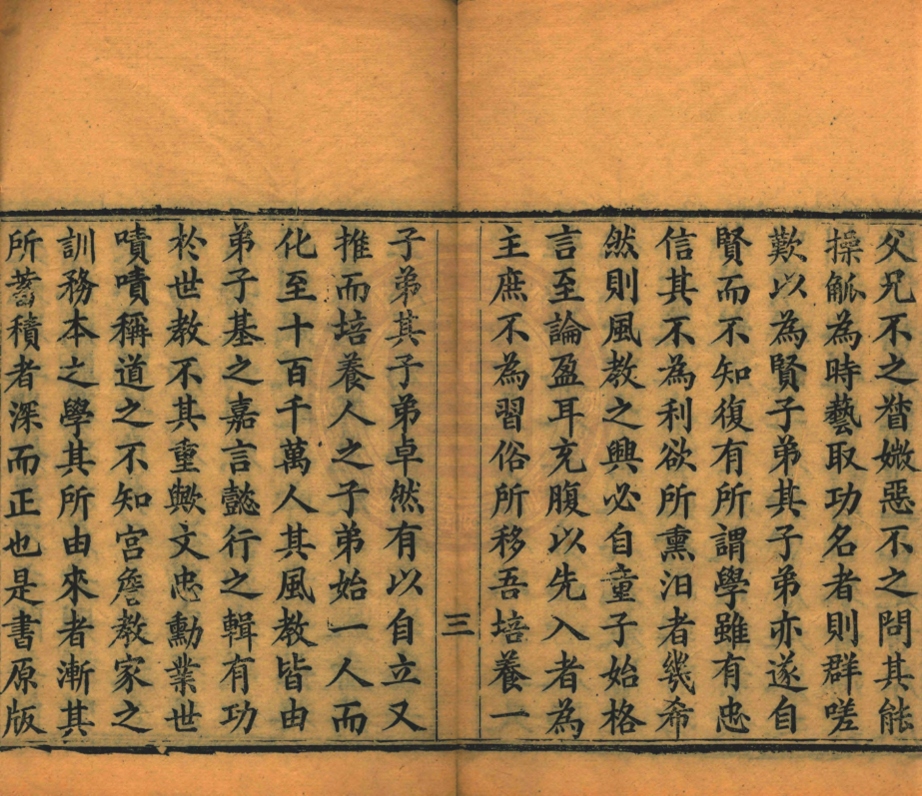 父兄不之督媺惡不之問其能
操觚為時藝取功名者則群嗟
歎以為賢子弟其子弟亦遂自
賢而不知復有所謂學雖有忠
信其不為利欲所熏汨者幾希
然則風教之興必自童子始格
言至論盈耳充腹以先入者為
主庶不為習俗所移吾培養一
三
子弟其子弟卓然有以自立又
推而培養人之子弟始一人而
化至十百千萬人其風教皆由
弟子基之嘉言懿行之輯有功
於世教不其重歟文忠勳業世
嘖嘖稱道之不知宮詹教家之
訓務本之學其所由來者漸其
所蓄積者深而正也是書原版